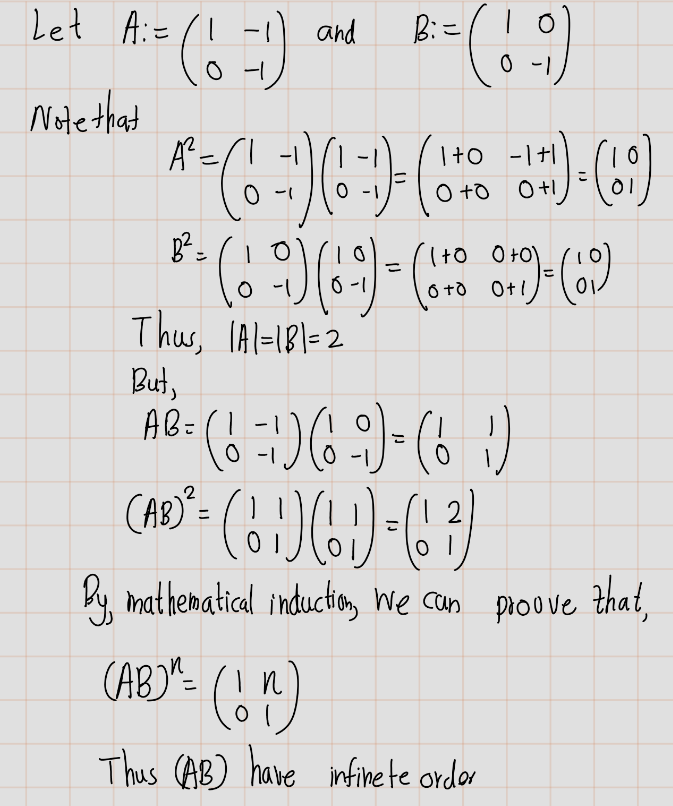 Let A:= (1 -1 0 -1) and B:= (1 0 0 -1)
Note that
A² = (1 -1 0 -1)(1 -1 0 -1) = (1+0 -1+1 0+0 0+1) = (1 0 0 1)
B² = (1 0 0 -1)(1 0 0 -1) = (1+0 0+0 0+0 0+1) = (1 0 0 1)
Thus, |A|=|B|=2
But,
AB = (1 -1 0 -1)(1 0 0 -1) = (1 1 0 1)
(AB)² = (1 1 0 1)(1 1 0 1) = (1 2 0 1)
By, mathematical induction, we can proove that,
(AB)ⁿ = (1 n 0 1)
Thus (AB) have infinete order